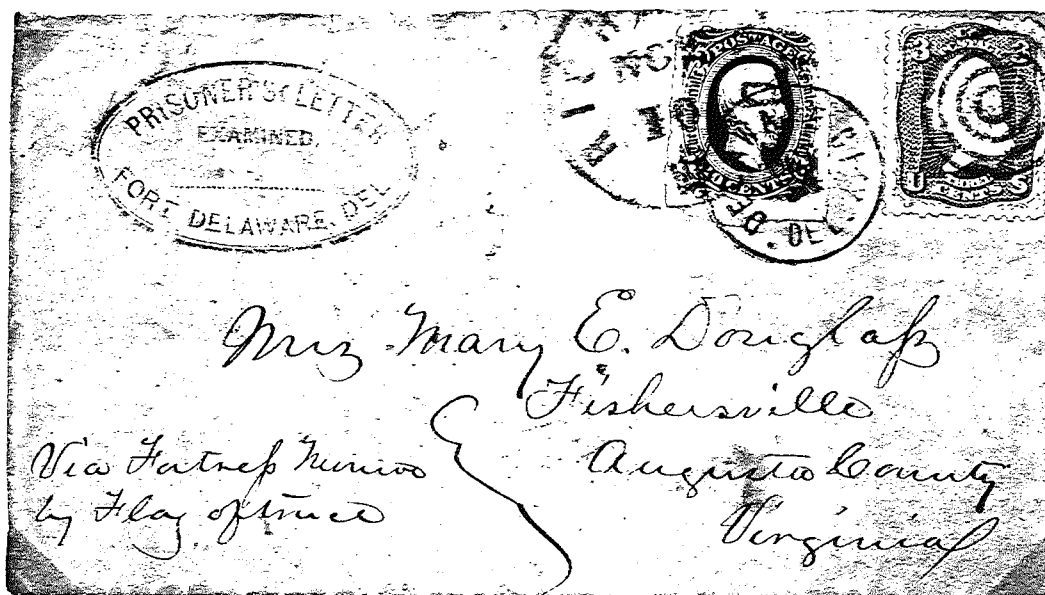 PRISONER'S LETTER
EXAMINED.
FORT DELAWARE, DEL
POSTAGE
CENTS
DEL.
3
U S
CENTS
Mrs Mary E. Douglass
Fishersville
Augusta County
Virginia
Via Fortress Monroe
by Flag of truce